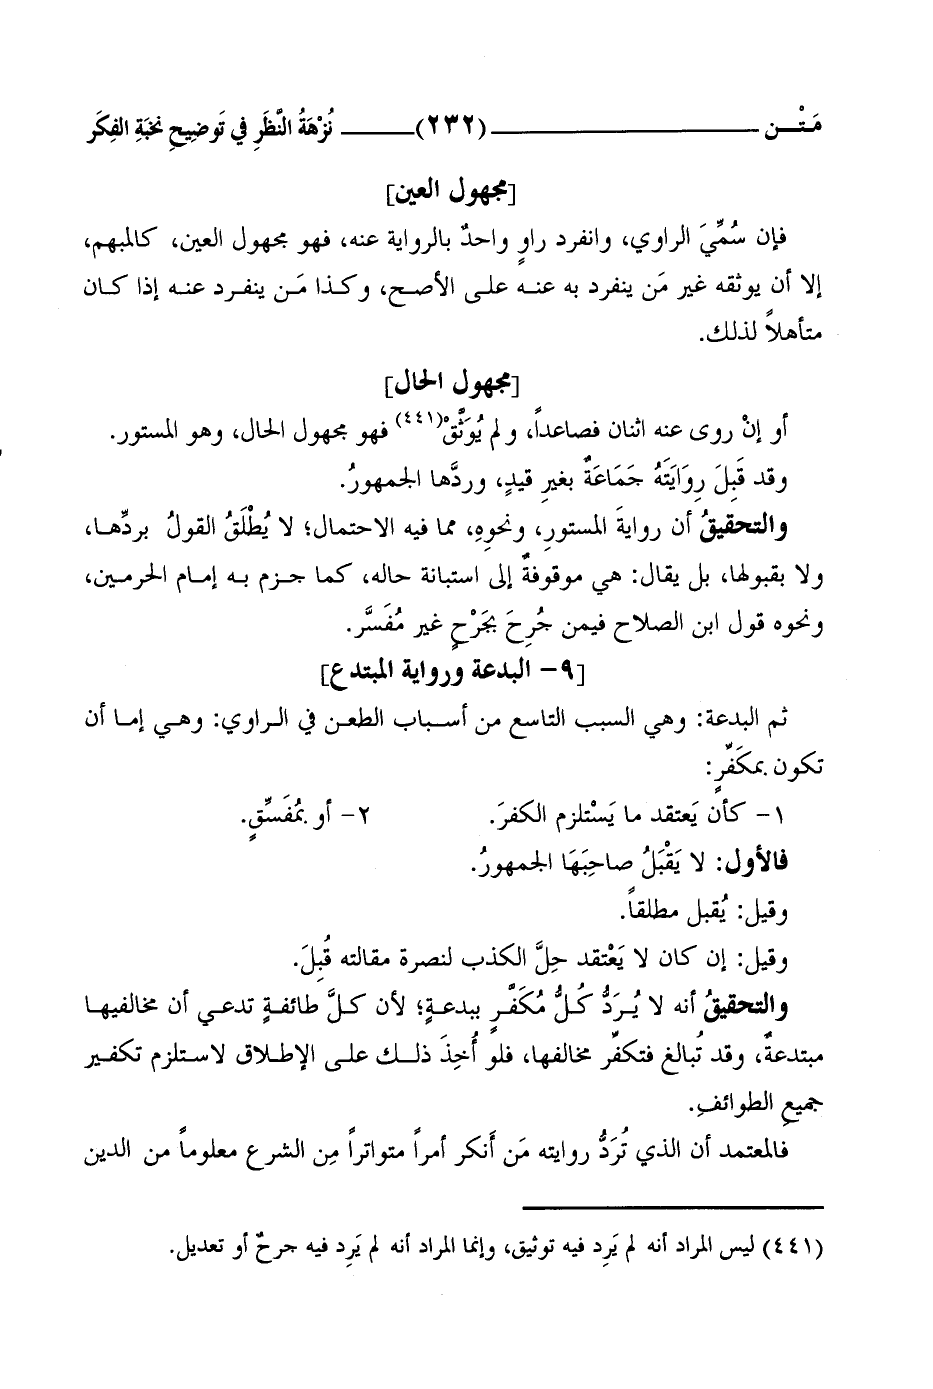 مَتْــن ــــــــــ (٢٣٢) ــــــــــ نُزْهَةُ النَّظَرِ في تَوضِيحِ نخبَةِ الفِكَر
[مجهول العين]
فإن سُمِّيَ الراوي، وانفرد راوٍ واحدٌ بالرواية عنه، فهو مجهول العين، كالمبهم،
إلا أن يوثقه غير مَن ينفرد به عنه على الأصح، وكذا مَن ينفرد عنه إذا كان
متأهلاً لذلك.
[مجهول الحال]
أو إنْ روى عنه اثنان فصاعداً، ولم يُوَثَّقْ(٤٤١) فهو مجهول الحال، وهو المستور.
وقد قَبِلَ رِوَايَتَهُ جَمَاعَةٌ بغيرِ قيدٍ، وردَّها الجمهورُ.
والتحقيقُ أن روايةَ المستورِ، ونحوِهِ، مما فيه الاحتمال؛ لا يُطْلَقُ القولُ بردِّها،
ولا بقبولها، بل يقال: هي موقوفةٌ إلى استبانة حاله، كما جزم به إمام الحرمين،
ونحوه قول ابن الصلاح فيمن جُرِحَ بجَرْحٍ غير مُفَسَّر.
[٩- البدعة ورواية المبتدع]
ثم البدعة: وهي السبب التاسع من أسباب الطعن في الراوي: وهي إما أن
تكون بمكَفِّرٍ:
١- كأن يَعتقد ما يَسْتلزم الكفرَ. ٢- أو بمُفَسِّقٍ.
فالأول: لا يَقْبَلُ صاحِبَهَا الجمهورُ.
وقيل: يُقبل مطلقاً.
وقيل: إن كان لا يَعْتقد حِلَّ الكذب لنصرة مقالته قُبِلَ.
والتحقيقُ أنه لا يُرَدُّ كُلُّ مُكَفَّرٍ ببدعةٍ؛ لأن كلَّ طائفةٍ تدعي أن مخالفيها
مبتدعةٌ، وقد تُبالغ فتكفِّر مخالفها، فلو أُخِذَ ذلك على الإطلاق لاستلزم تكفير
جميعِ الطوائفِ.
فالمعتمد أن الذي تُرَدُّ روايته مَن أَنكر أمراً متواتراً مِن الشرع معلوماً من الدين
(٤٤١) ليس المراد أنه لم يَرِد فيه توثيق، وإنما المراد أنه لم يَرِد فيه جرحٌ أو تعديل.